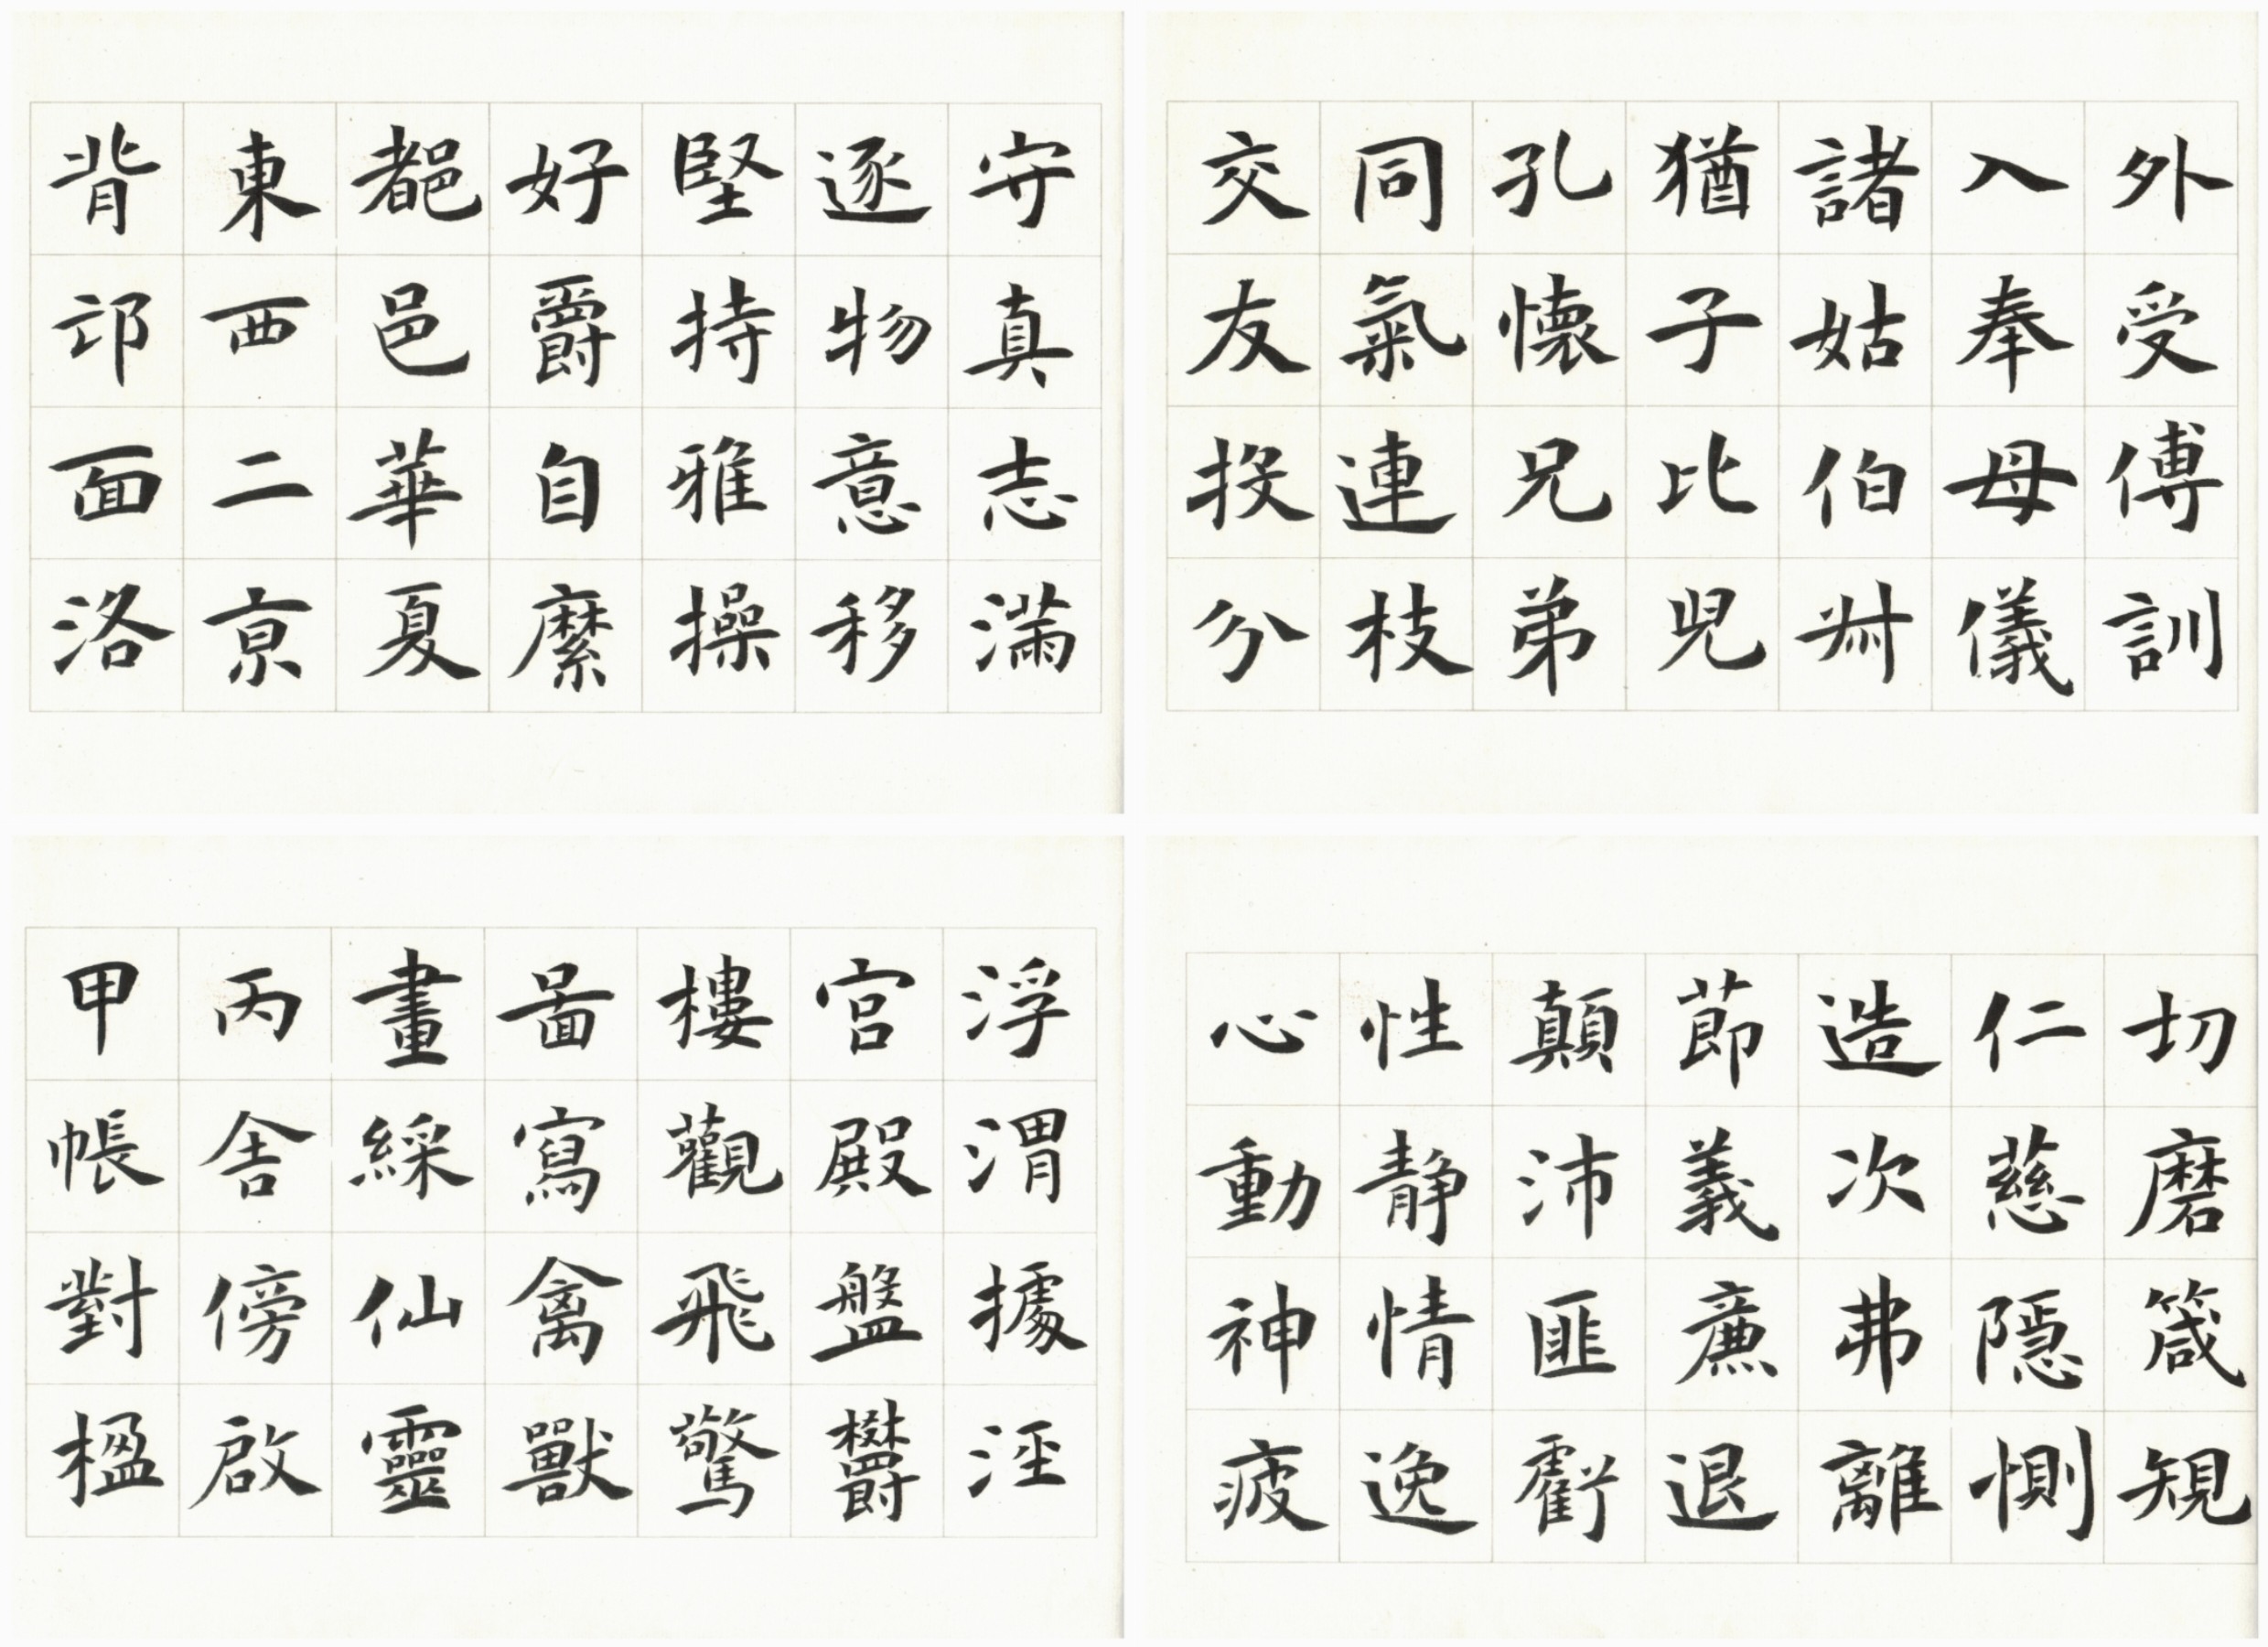 外受傅訓
入奉母儀
諸姑伯叔
猶子比兒
孔懷兄弟
同氣連枝
交友投分
切磨箴規
仁慈隱惻
造次弗離
節義廉退
顛沛匪虧
性静情逸
心動神疲
守真志滿
逐物意移
堅持雅操
好爵自縻
都邑華夏
東西二京
背邙面洛
浮渭據涇
宮殿盤鬱
樓觀飛驚
圖寫禽獸
畫綵仙靈
丙舍傍啟
甲帳對楹